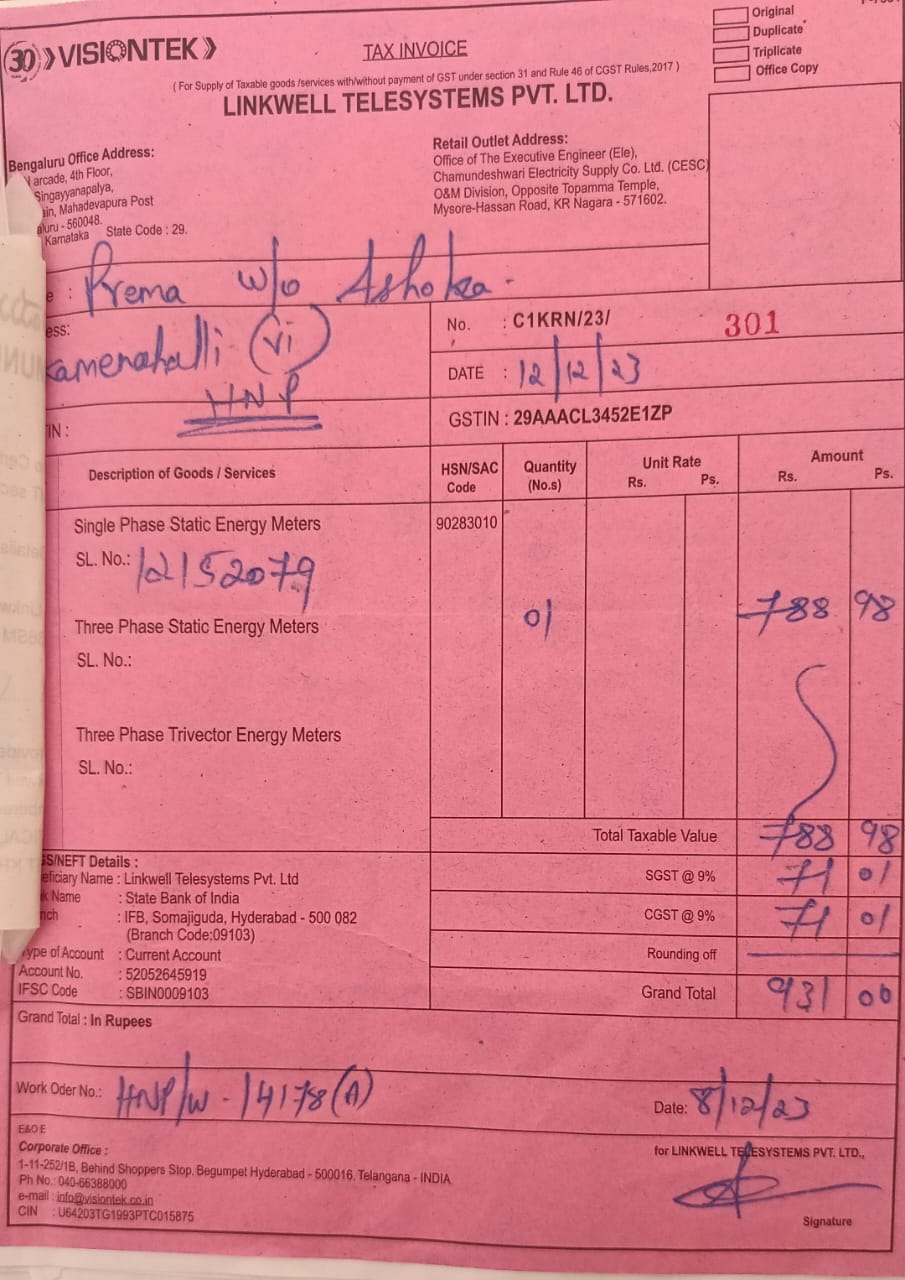 30 VISIONTEK
TAX INVOICE
Original
Duplicate
Triplicate
Office Copy
( For Supply of Taxable goods /services with/without payment of GST under section 31 and Rule 46 of CGST Rules,2017 )
LINKWELL TELESYSTEMS PVT. LTD.
Bengaluru Office Address:
arcade, 4th Floor,
Singayyanapalya,
ain, Mahadevapura Post
aluru - 560048.
Karnataka State Code : 29.
Retail Outlet Address:
Office of The Executive Engineer (Ele),
Chamundeshwari Electricity Supply Co. Ltd. (CESC)
O&M Division, Opposite Topamma Temple,
Mysore-Hassan Road, KR Nagara - 571602.
e : Prema w/o Ashoka
ess:
kamenahalli (vi)
HNP
IN :
No. : C1KRN/23/ 301
DATE : 12/12/23
GSTIN : 29AAACL3452E1ZP
Description of Goods / Services HSN/SAC Code Quantity (No.s) Unit Rate Rs. Ps. Amount Rs. Ps.
Single Phase Static Energy Meters 90283010
SL. No.: 12152079
01 788 98
Three Phase Static Energy Meters
SL. No.:
Three Phase Trivector Energy Meters
SL. No.:
Total Taxable Value 788 98
SGST @ 9% 71 01
CGST @ 9% 71 01
Rounding off
Grand Total 931 00
GS/NEFT Details :
eficiary Name : Linkwell Telesystems Pvt. Ltd
k Name : State Bank of India
nch : IFB, Somajiguda, Hyderabad - 500 082
(Branch Code:09103)
Type of Account : Current Account
Account No. : 52052645919
IFSC Code : SBIN0009103
Grand Total : In Rupees
Work Oder No.: HNP/W - 14178(A)
Date: 8/12/23
E&OE
Corporate Office :
1-11-252/1B, Behind Shoppers Stop, Begumpet Hyderabad - 500016, Telangana - INDIA
Ph No.: 040-66388000
e-mail : info@visiontek.co.in
CIN : U64203TG1993PTC015875
for LINKWELL TELESYSTEMS PVT. LTD.,
Signature